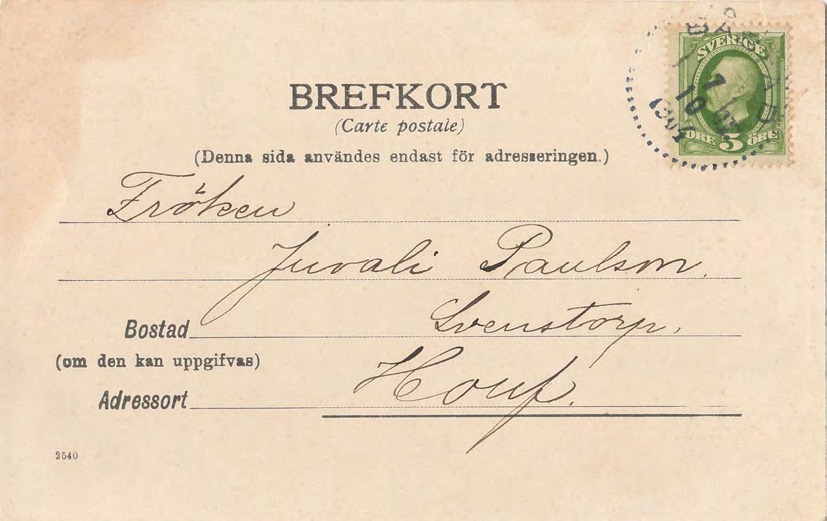 BÅSTAD
1
10
1901
SVERIGE
ÖRE 5 ÖRE
BREFKORT
(Carte postale)
(Denna sida användes endast för adresseringen.)
Fröken
Juvali Paulson.
Bostad Svenstorp,
(om den kan uppgifvas)
Adressort Houf.
2540